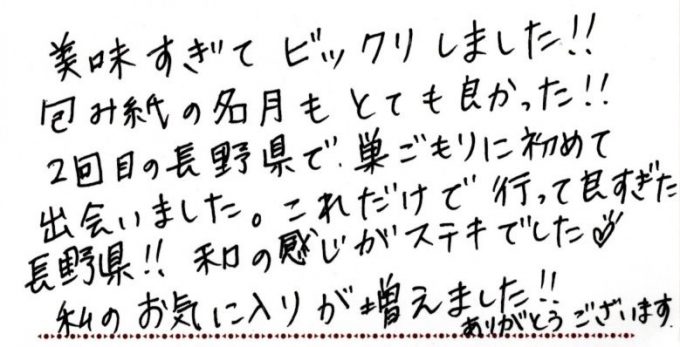 美味すぎて ビックリしました!!
包み紙の名月もとても良かった!!
2回目の長野県で.巣ごもりに初めて
出会いました。これだけで行って良すぎた
長野県!! 和の感じがステキでした♡
私のお気に入りが増えました!!
ありがとうございます.